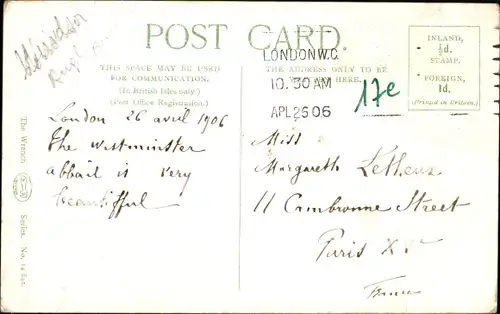 POST CARD.
THIS SPACE MAY BE USED
FOR COMMUNICATION.
(In British Isles only.)
(Post Office Registration.)
THE ADDRESS ONLY TO BE
HERE.
LONDON W.C.
10.30 AM
APL 26 06
INLAND,
½d.
STAMP.
FOREIGN,
1d.
(Printed in Britain.)
17e
London 26 avril 1906
The westminster
abbaïl is very
beautifful
Miss
Margareth
11 Cambronne Street
Paris
France
The Wrench
Series, No.